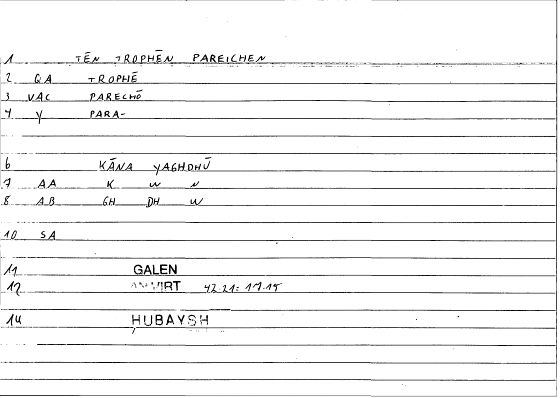 1 TĒN TROPHĒN PAREICHEN
2 QA TROPHĒ
3 VAC PARECHŌ
4 Y PARA-
6 KĀNA YAGHDHŪ
7 AA K W N
8 AB GH DH W
10 SA
11 GALEN
12 42.21: 17.15
14 HUBAYSH